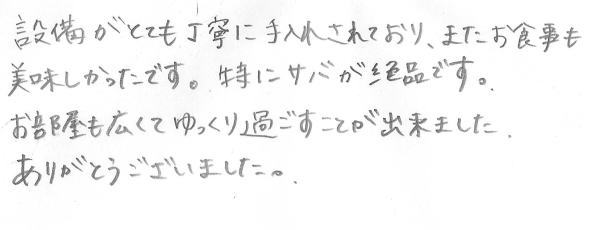 設備がとても丁寧に手入れされており、またお食事も
美味しかったです。特にサバが絶品です。
お部屋も広くてゆっくり過ごすことが出来ました.
ありがとうございました。.